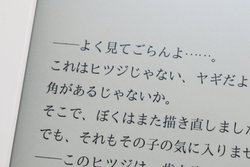 ――よく見てごらんよ……。
これはヒツジじゃない、ヤギだよ
角があるじゃないか。
そこで、ぼくはまた描き直しました
でも、それもその子の気に入りませ
――このヒツジは、歩